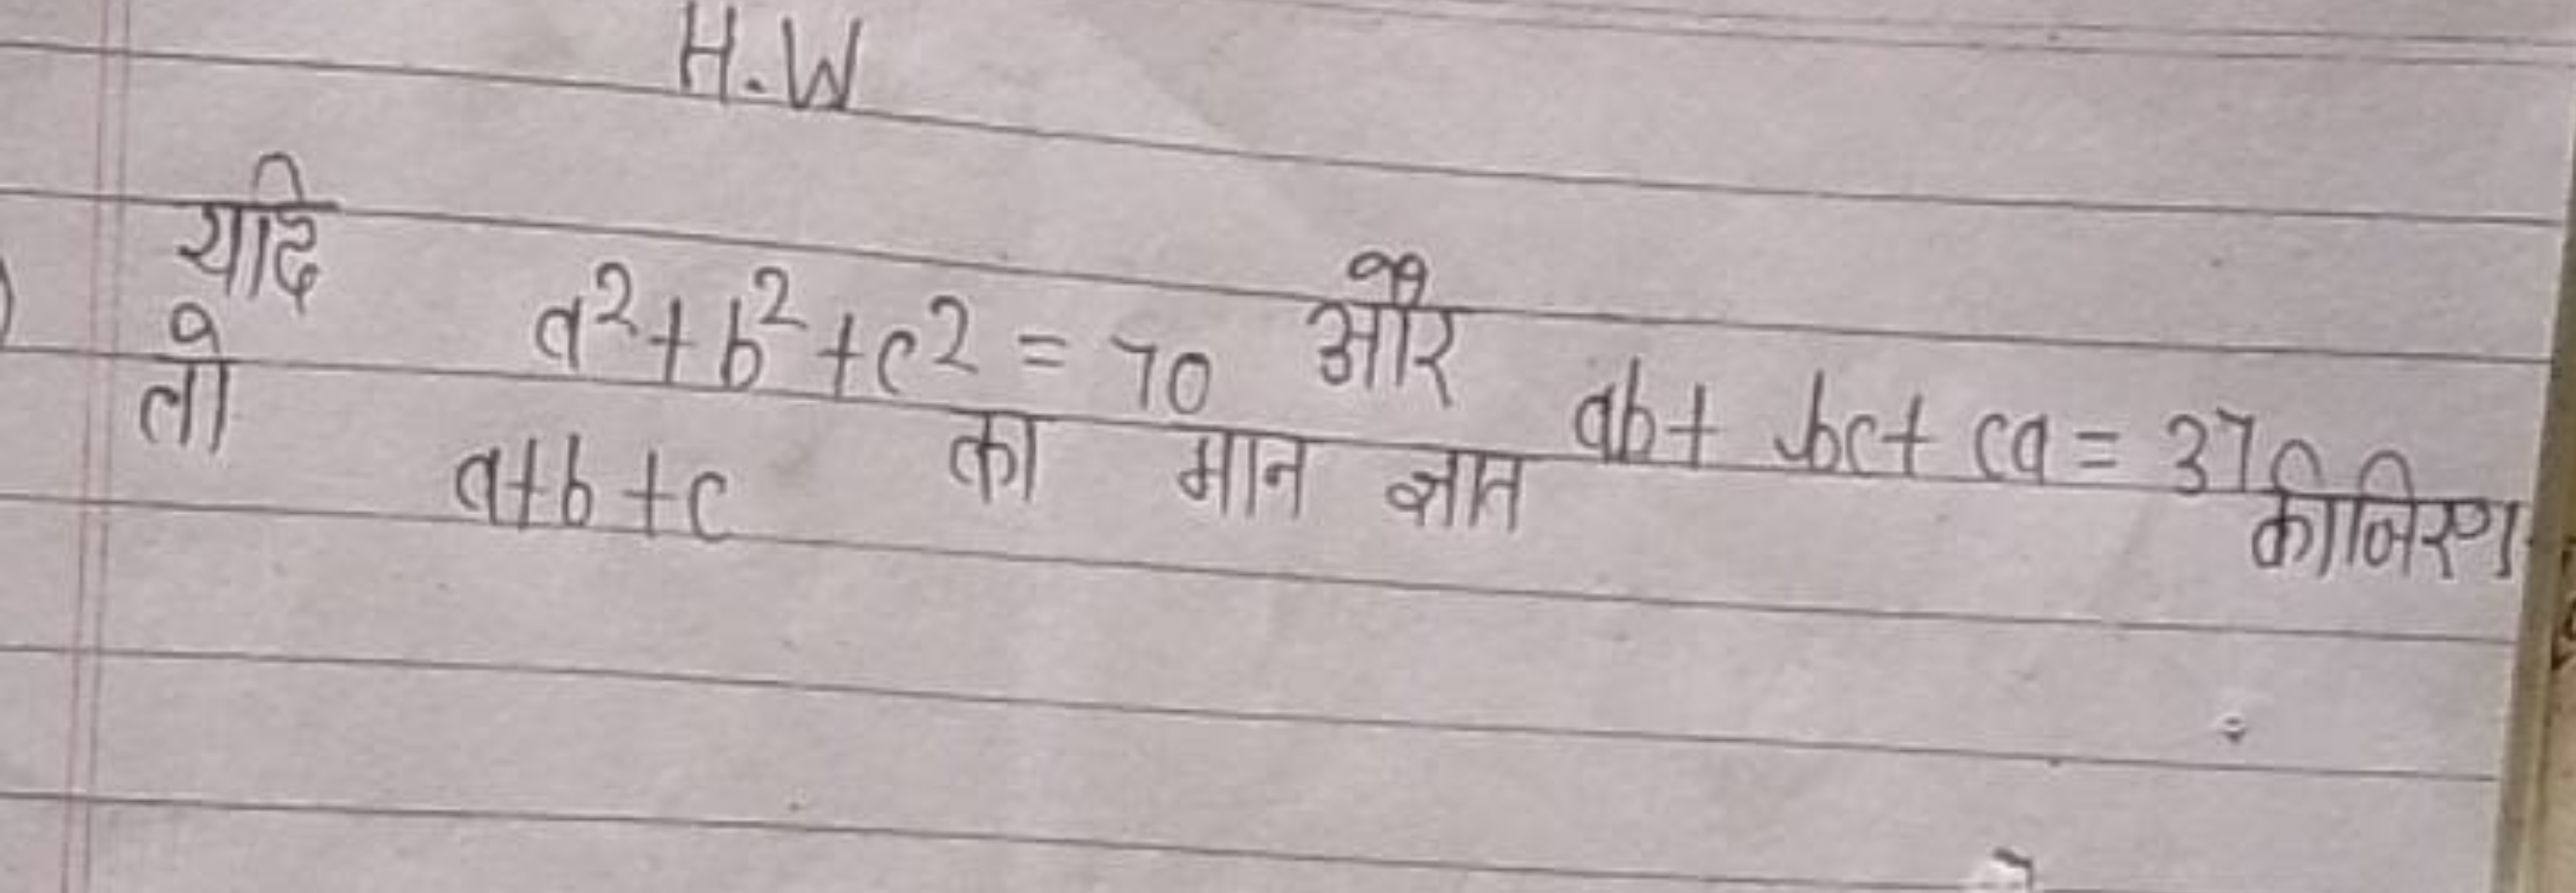 H.W
यदि a²+b²+c² = 70 और ab+ bc+ ca = 37
तो a+b+c का मान ज्ञात कीजिए